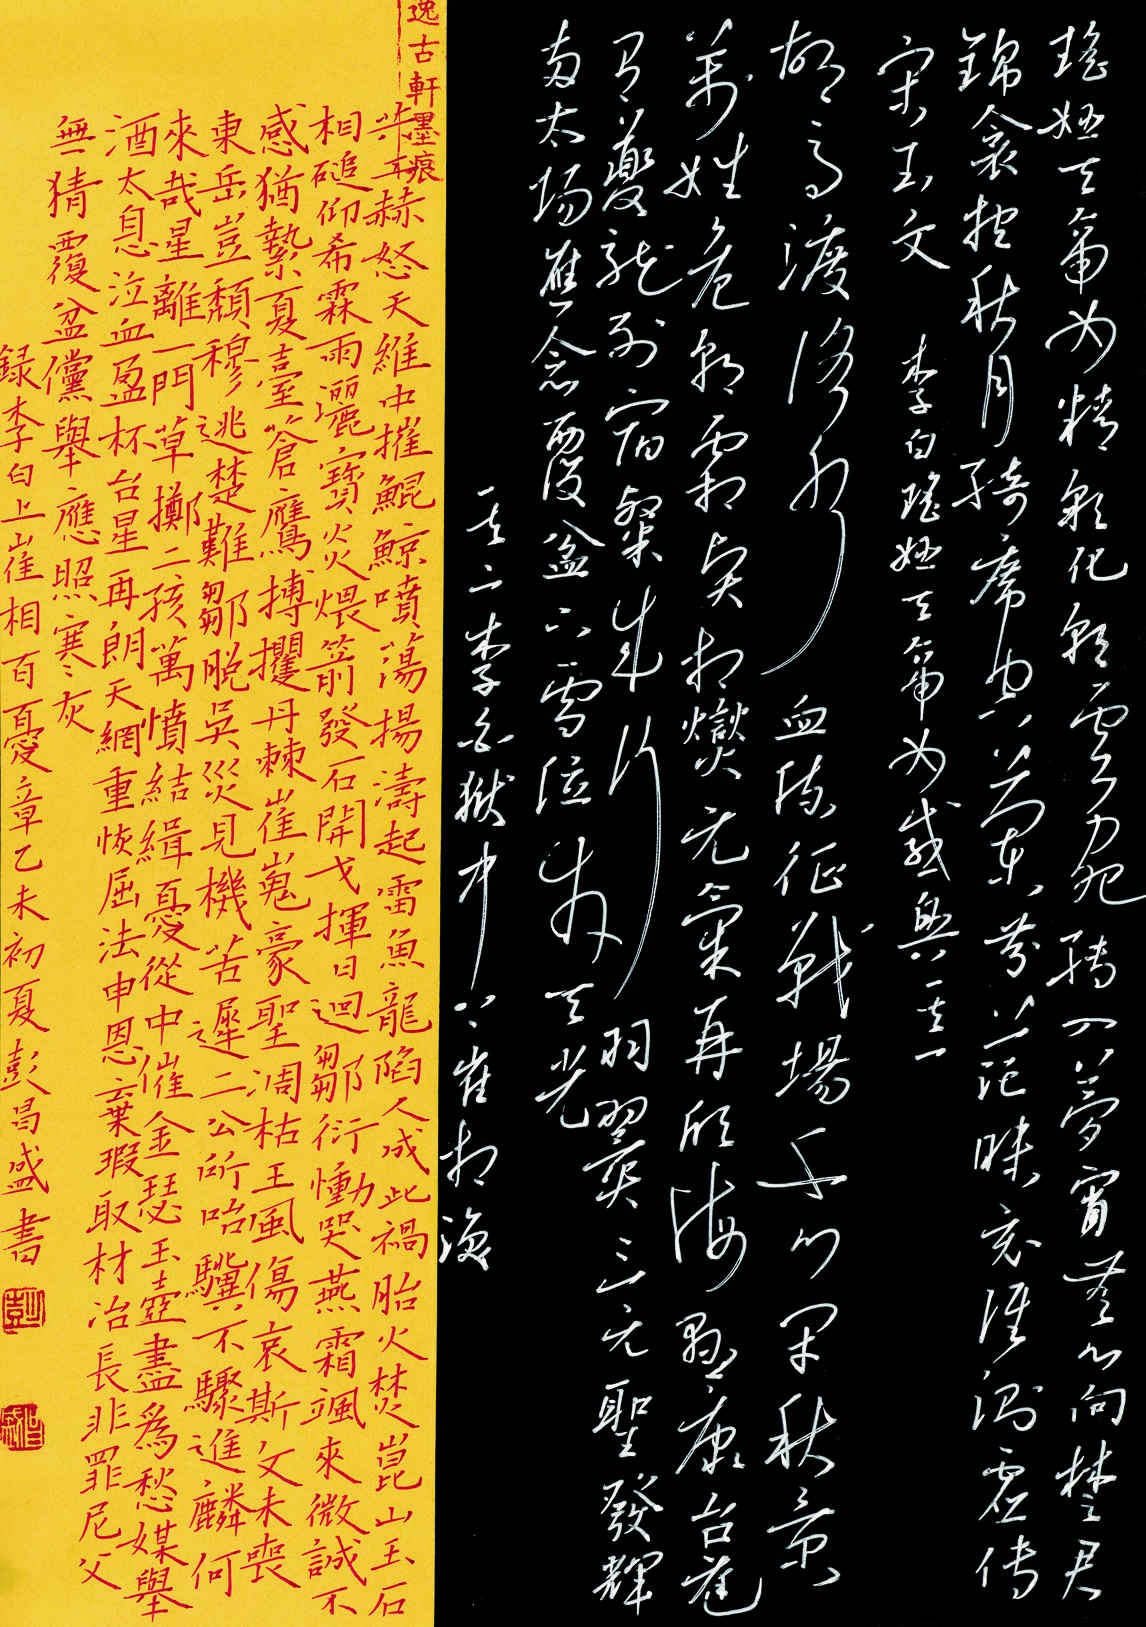 瑤姬天帝女精彩化朝雲宛轉入夢宵無心向楚君
錦衾抱秋月綺席空蘭芬茫昧竟誰測虛傳
宋玉文
李白瑤姬天帝女感興其一
胡馬渡洛水血流征戰場千門閉秋景
萬姓危朝霜賢相燮元氣再欣海縣康台庭
有夔龍列宿粲成行羽翼三元聖發輝
兩太陽應念覆盆下雪泣拜天光
其二李白獄中上崔相渙
逸古軒墨痕
共工赫怒天維中摧鯤鯨噴蕩揚濤起雷魚龍陷人成此禍胎火焚崑山玉石
相磓仰希霖雨灑寶炎煨箭發石開戈揮日迴鄒衍慟哭燕霜颯來微誠不
感猶縶夏臺蒼鷹搏攫丹棘崔嵬豪聖凋枯王風傷哀斯文未喪
東岳豈頹穆逃楚難鄒脫吳災見機苦遲二公所咍驥不驟進麟何
來哉星離一門草擲二孩萬憤結緝憂從中催金瑟玉壺盡為愁媒舉
酒太息泣血盈杯台星再朗天網重恢屈法申恩棄瑕取材冶長非罪尼父
無猜覆盆儻舉應照寒灰
録李白上崔相百憂章乙未初夏彭昌盛書